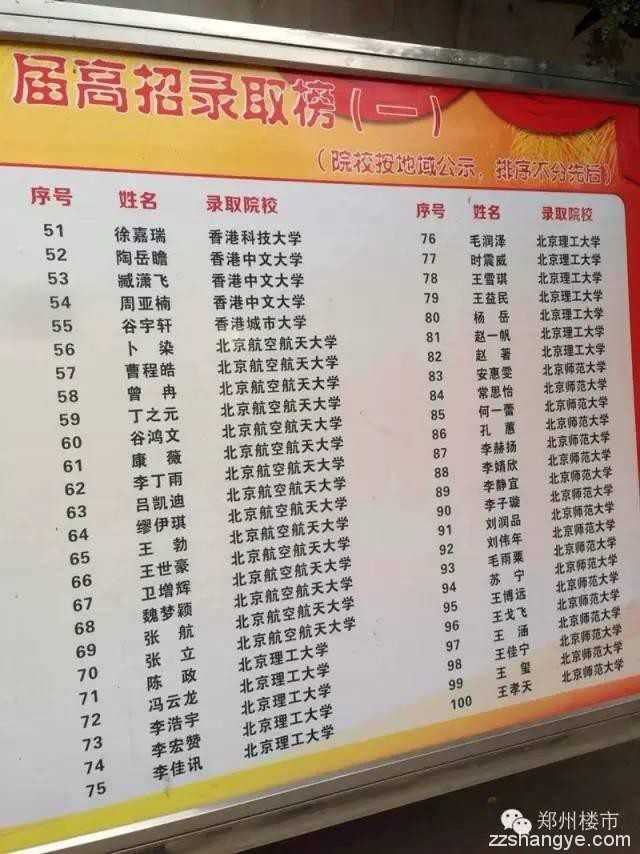 届高招录取榜(一)
(院校按地域公示，排序不分先后)
序号 姓名 录取院校
51 徐嘉瑞 香港科技大学
52 陶岳瞻 香港中文大学
53 臧潇飞 香港中文大学
54 周亚楠 香港中文大学
55 谷宇轩 香港城市大学
56 卜染 北京航空航天大学
57 曹程皓 北京航空航天大学
58 曾冉 北京航空航天大学
59 丁之元 北京航空航天大学
60 谷鸿文 北京航空航天大学
61 康薇 北京航空航天大学
62 李丁雨 北京航空航天大学
63 吕凯迪 北京航空航天大学
64 缪伊琪 北京航空航天大学
65 王勃 北京航空航天大学
66 王世豪 北京航空航天大学
67 卫增辉 北京航空航天大学
68 魏梦颖 北京航空航天大学
69 张航 北京航空航天大学
70 张立 北京航空航天大学
71 陈政 北京理工大学
72 冯云龙 北京理工大学
73 李浩宇 北京理工大学
74 李宏赞 北京理工大学
75 李佳讯 北京理工大学
序号 姓名 录取院校
76 毛润泽 北京理工大学
77 时震威 北京理工大学
78 王雪琪 北京理工大学
79 王益民 北京理工大学
80 杨岳 北京理工大学
81 赵一帆 北京理工大学
82 赵著 北京理工大学
83 安惠雯 北京师范大学
84 常思怡 北京师范大学
85 何一蕾 北京师范大学
86 孔蕙 北京师范大学
87 李赫扬 北京师范大学
88 李婧欣 北京师范大学
89 李静宜 北京师范大学
90 李子璇 北京师范大学
91 刘润品 北京师范大学
92 刘伟年 北京师范大学
93 毛雨粟 北京师范大学
94 苏宁 北京师范大学
95 王博远 北京师范大学
96 王戈飞 北京师范大学
97 王涵 北京师范大学
98 王佳宁 北京师范大学
99 王玺 北京师范大学
100 王孝天 北京师范大学
郑州楼市
zzshangye.com